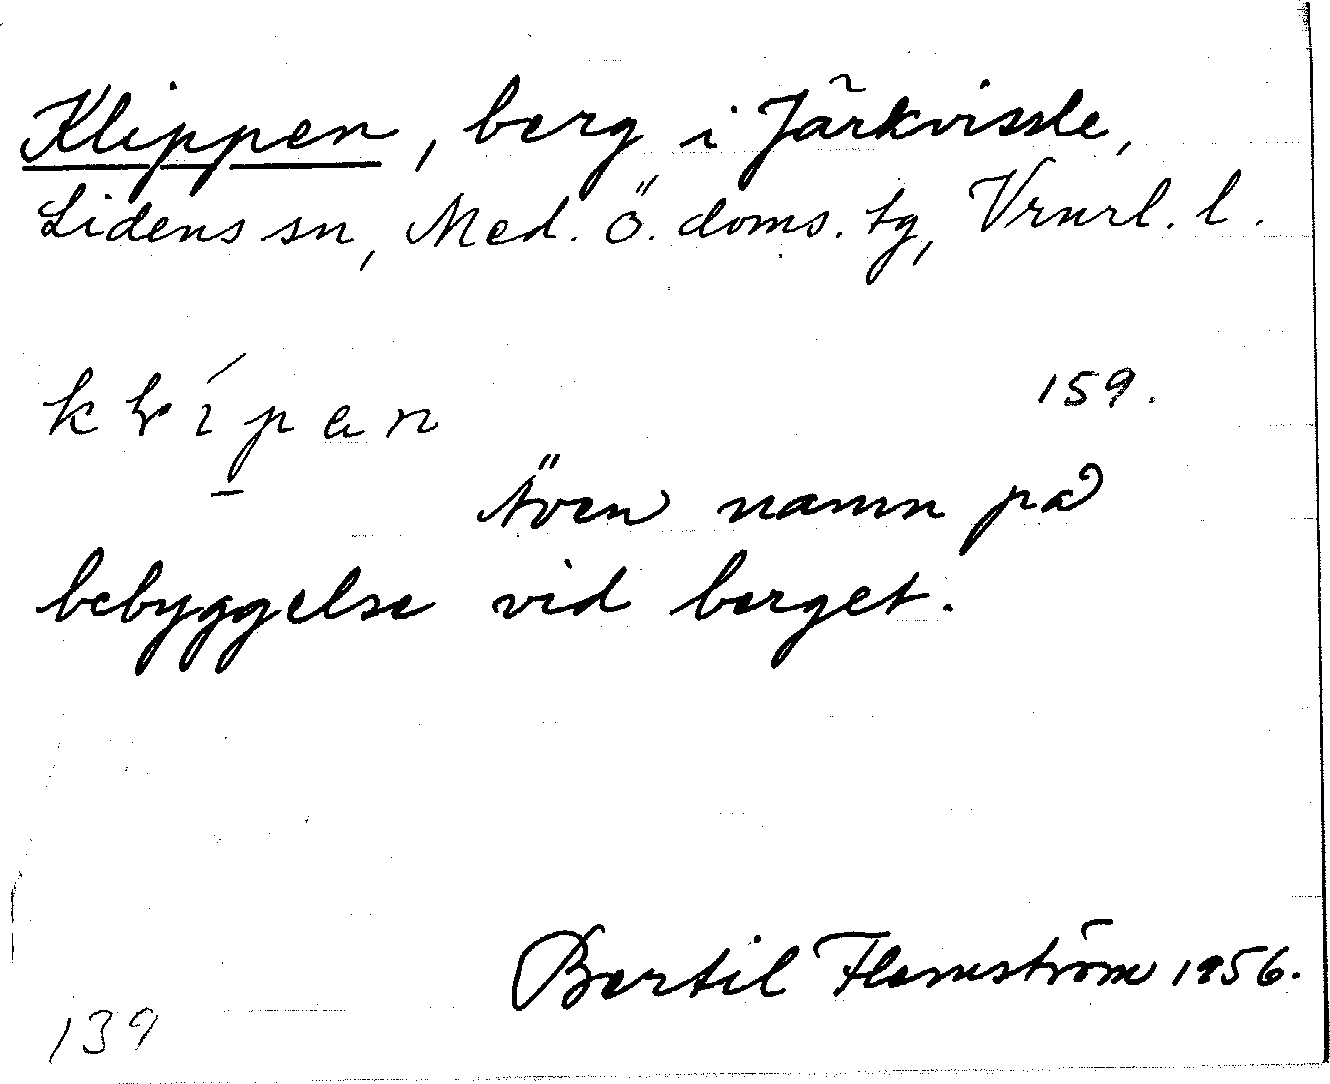 Klippen, berg i Järkvissle,
Lidens sn, Med. Ö. doms. tg, Vrnrl. l.
159.
Även namn på
bebyggelse vid berget.
Bertil Flemström 1956.
139